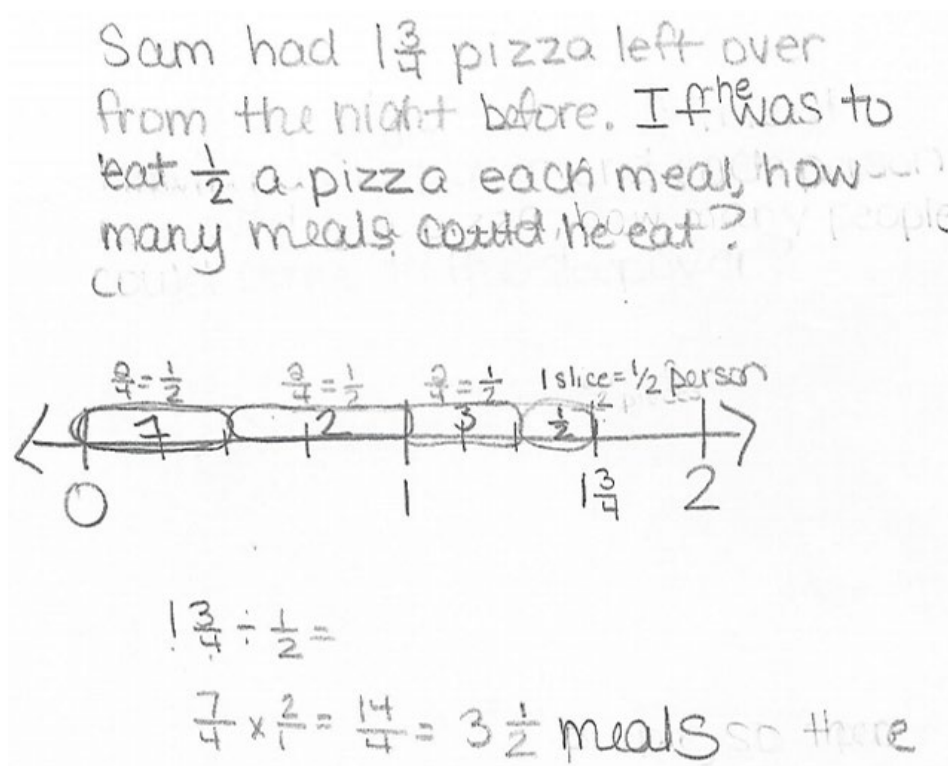 Sam had 1 3/4 pizza left over
from the night before. If he was to
eat 1/2 a pizza each meal, how
many meals could he eat?
2/4 = 1/2 2/4 = 1/2 2/4 = 1/2 1 slice = 1/2 person
1 2 3 1/2
0 1 1 3/4 2
1 3/4 ÷ 1/2 =
7/4 × 2/1 = 14/4 = 3 1/2 meals so there